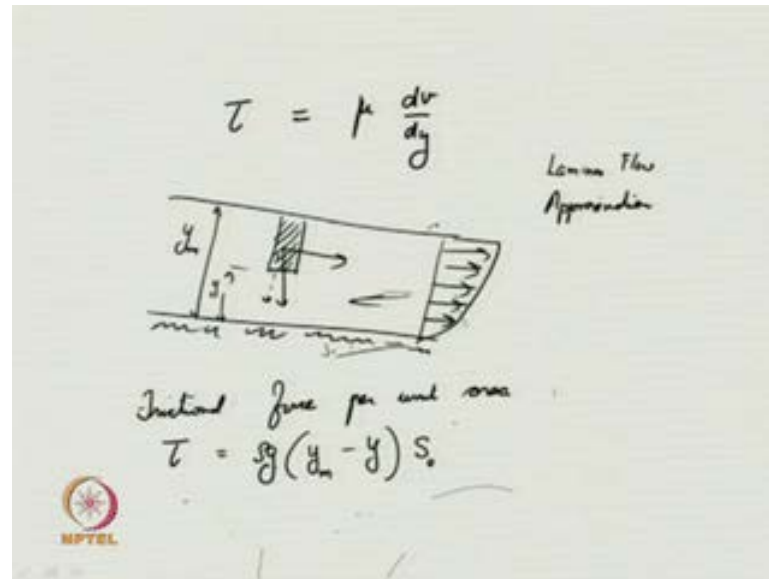 τ = μ dv/dy
Laminar Flow
Approximation
yₘ
y
Frictional force per unit area
τ = ρg(yₘ - y) S₀
NPTEL